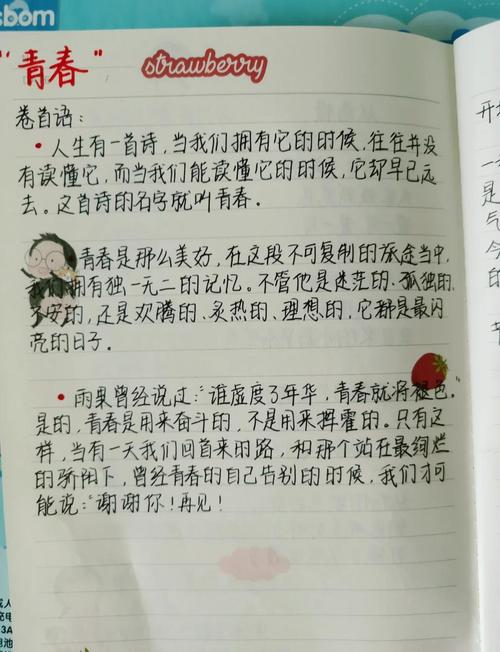 sbom
"青春"
strawberry
卷首语：
• 人生有一首诗，当我们拥有它的时候，往往并没
有读懂它，而当我们能读懂它的时候，它却早已远
去。这首诗的名字就叫青春。
青春是那么美好，在这段不可复制的旅途当中，
我们拥有独一无二的记忆。不管他是迷茫的、孤独的、
不安的，还是欢腾的、炙热的、理想的，它都是最闪
亮的日子。
• 雨果曾经说过："谁虚度了年华，青春就将褪色。"
是的，青春是用来奋斗的，不是用来挥霍的。只有这
样，当有一天我们回首来的路，和那个站在最绚烂
的骄阳下，曾经青春的自己告别的时候，我们才可
能说："谢谢你！再见！
开
一
是
气
今
的